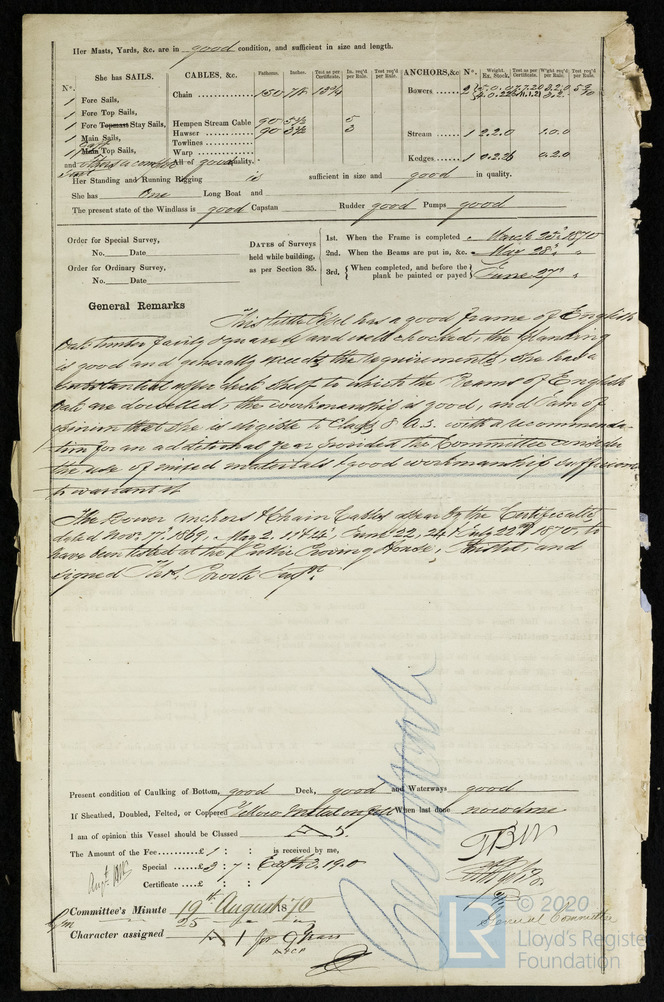 Her Masts, Yards, &c. are in good condition, and sufficient in size and length.
She has SAILS.
No.
1 Fore Sails,
1 Fore Top Sails,
1 Fore Topmast Stay Sails,
1 Main Sails,
1 Main Top Sails,
and others a complete
CABLES, &c. Fathoms. Inches. Test as per Certificate. In. req'd per Rule. Test req'd per Rule.
Chain 150 7/8 13 3/4
Hempen Stream Cable 90 5½ 5
Hawser 90 3½ 3
Towlines
Warp
All of good quality.
ANCHORS, &c No. Weight. Ex. Stock. Test as per Certificate. W'ght req'd per Rule. Test req'd per Rule.
Bowers 2
Stream 1 2.2.0 1.0.0
Kedges 1 0.2.26 0.2.0
Her Standing and Running Rigging is sufficient in size and good in quality.
She has One Long Boat and
The present state of the Windlass is good Capstan Rudder good Pumps good
Order for Special Survey,
No. Date
Order for Ordinary Survey,
No. Date
DATES of Surveys held while building, as per Section 35.
1st. When the Frame is completed March 25th 1870
2nd. When the Beams are put in, &c. May 28th "
3rd. { When completed, and before the plank be painted or payed } June 27th "
General Remarks
This little Vessel has a good frame of English
Oak timber fairly squared and well chocked, the planking
is good and generally exceeds the requirements, she has a
substantial upper deck shelf to which the Beams of English
Oak are dovetailed, the workmanship is good, and I am of
opinion that she is eligible to Class 8 A.S. with a recommenda-
tion for an additional year provided the Committee consider
the use of mixed materials & good workmanship sufficient
to warrant it
The Bower Anchors & Chain Cables appear by the Certificates
dated Nov. 17, 1869, May 2, June 22, 24 & July 22d 1870, to
have been tested at the Public Proving House, Bristol, and
signed Thos. Brock Supt.
Present condition of Caulking of Bottom, good Deck, good and Waterways good
If Sheathed, Doubled, Felted, or Coppered Yellow Metal on felt When last done now done
I am of opinion this Vessel should be Classed
The Amount of the Fee £1 : : is received by me,
Special £3 : 7 :
Certificate £ : :
Committee's Minute 19th August 1870
Character assigned A 1 for 9 Years
General Committee
© 2020
LR Lloyd's Register
Foundation